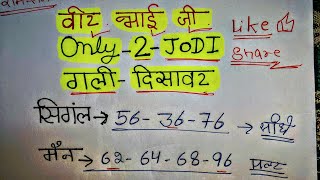 वीर भाई जी
Like
Only-2-JODI
Share
गली-दिसावर
सिगंल → 56-36-76 → सीधे
मैन → 62-64-68-96 → पलट